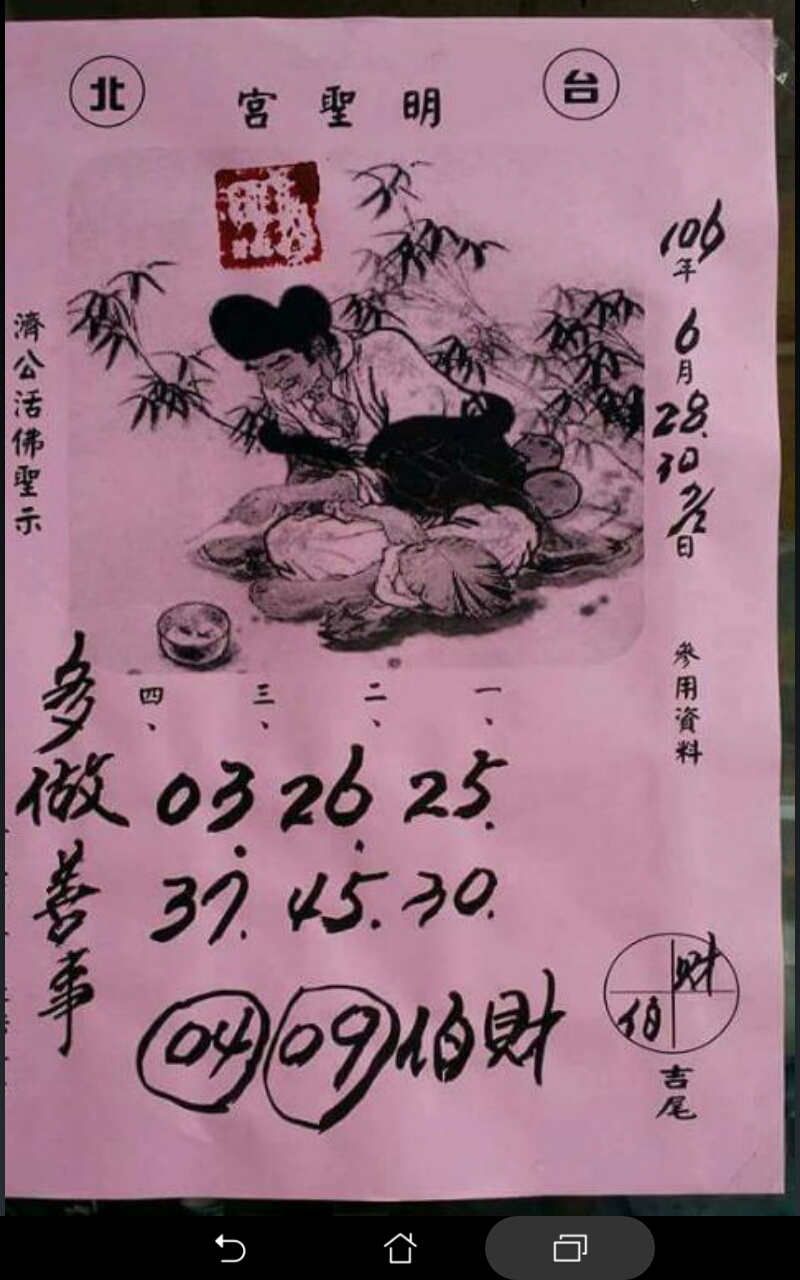 台北
明聖宮
106年6月28.30 7/1日
參用資料
一、二、三、四、
25. 26. 03.
30. 45. 37.
04 09 伯財
財
伯
吉尾
多做善事
濟公活佛聖示